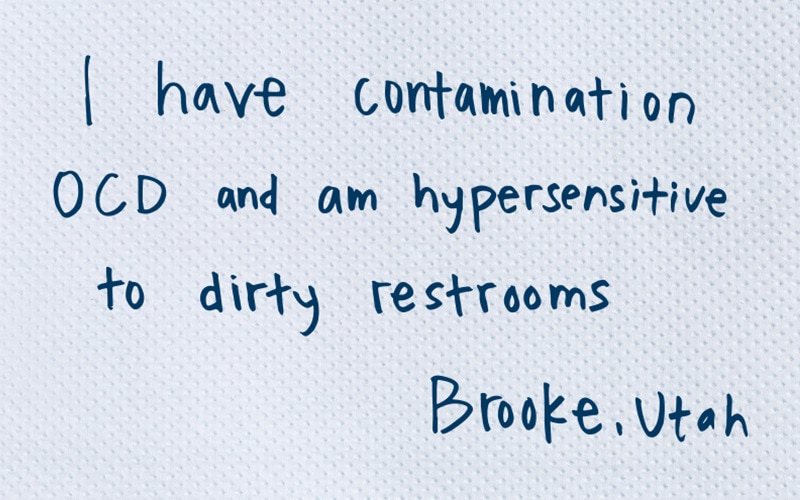 I have contamination
OCD and am hypersensitive
to dirty restrooms
Brooke, Utah